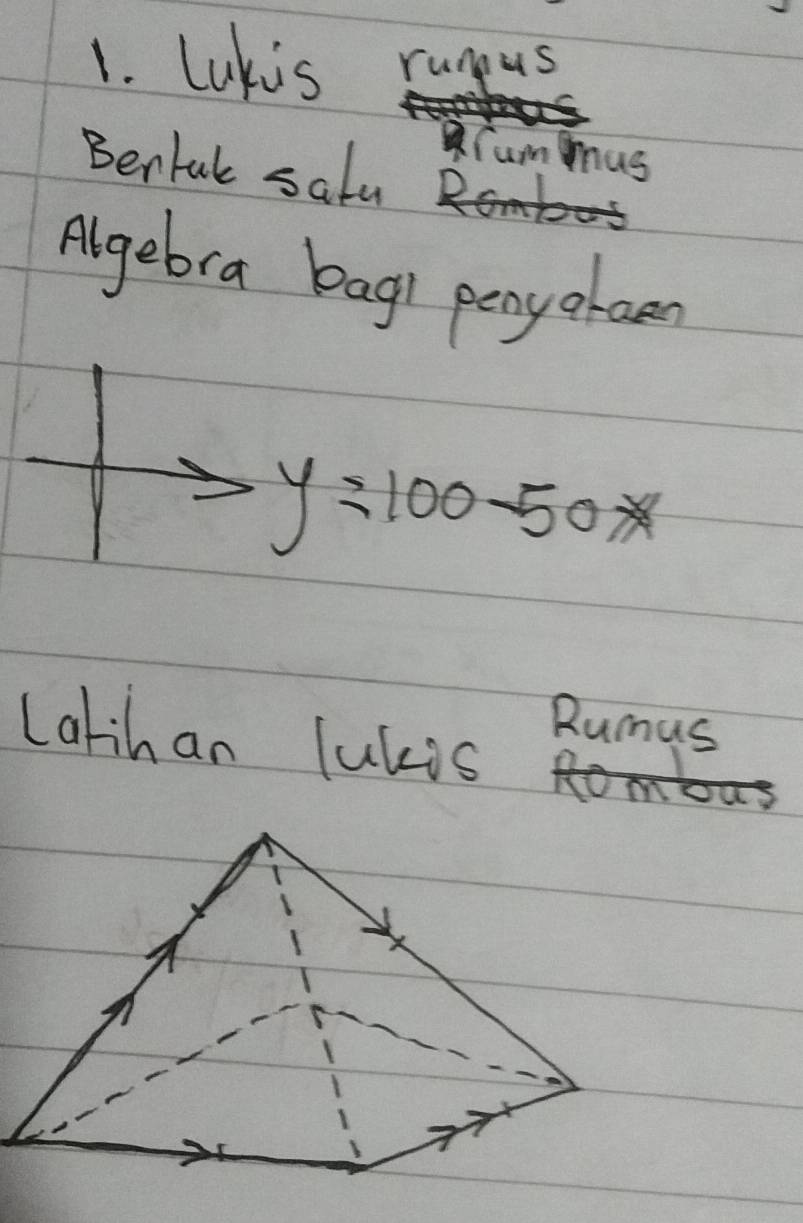 1. Lukis rumus
Bentuk satu rummus
Algebra bagi penyataan
y = 100 - 50x
Latihan lukis Rumus
Rombus